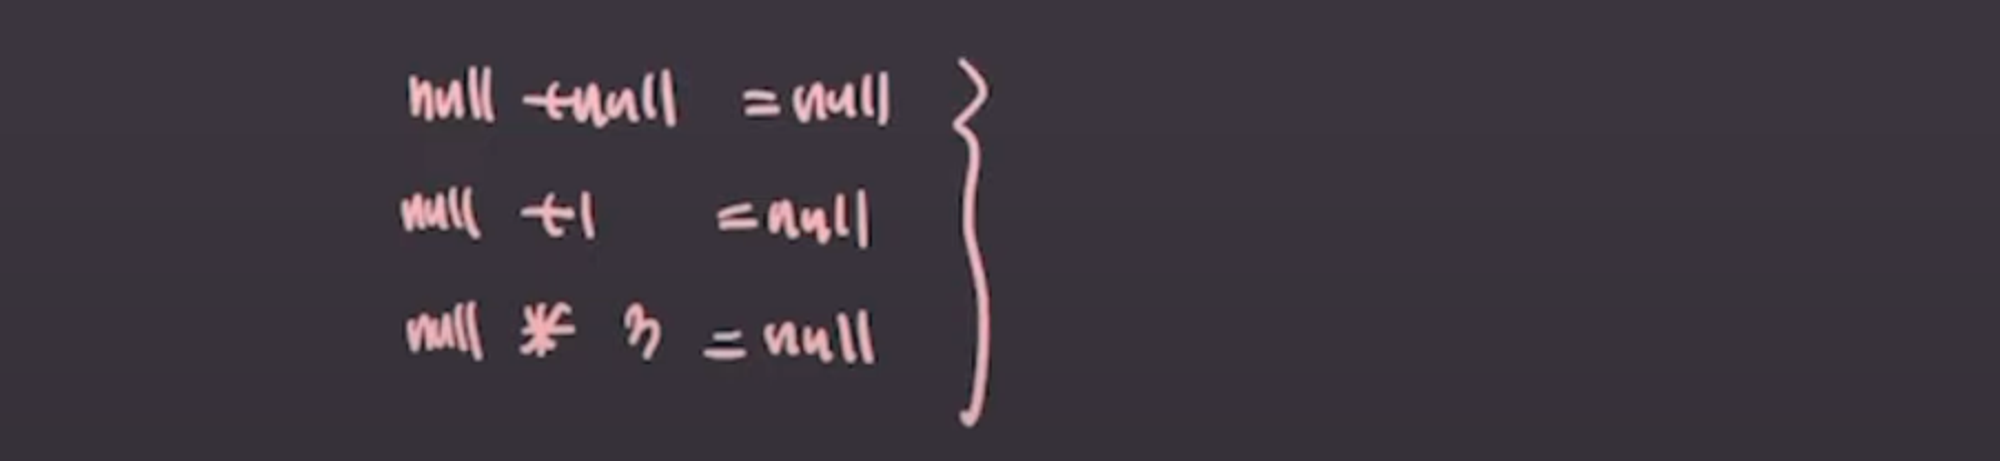 null + null = null
null + 1 = null
null * 3 = null